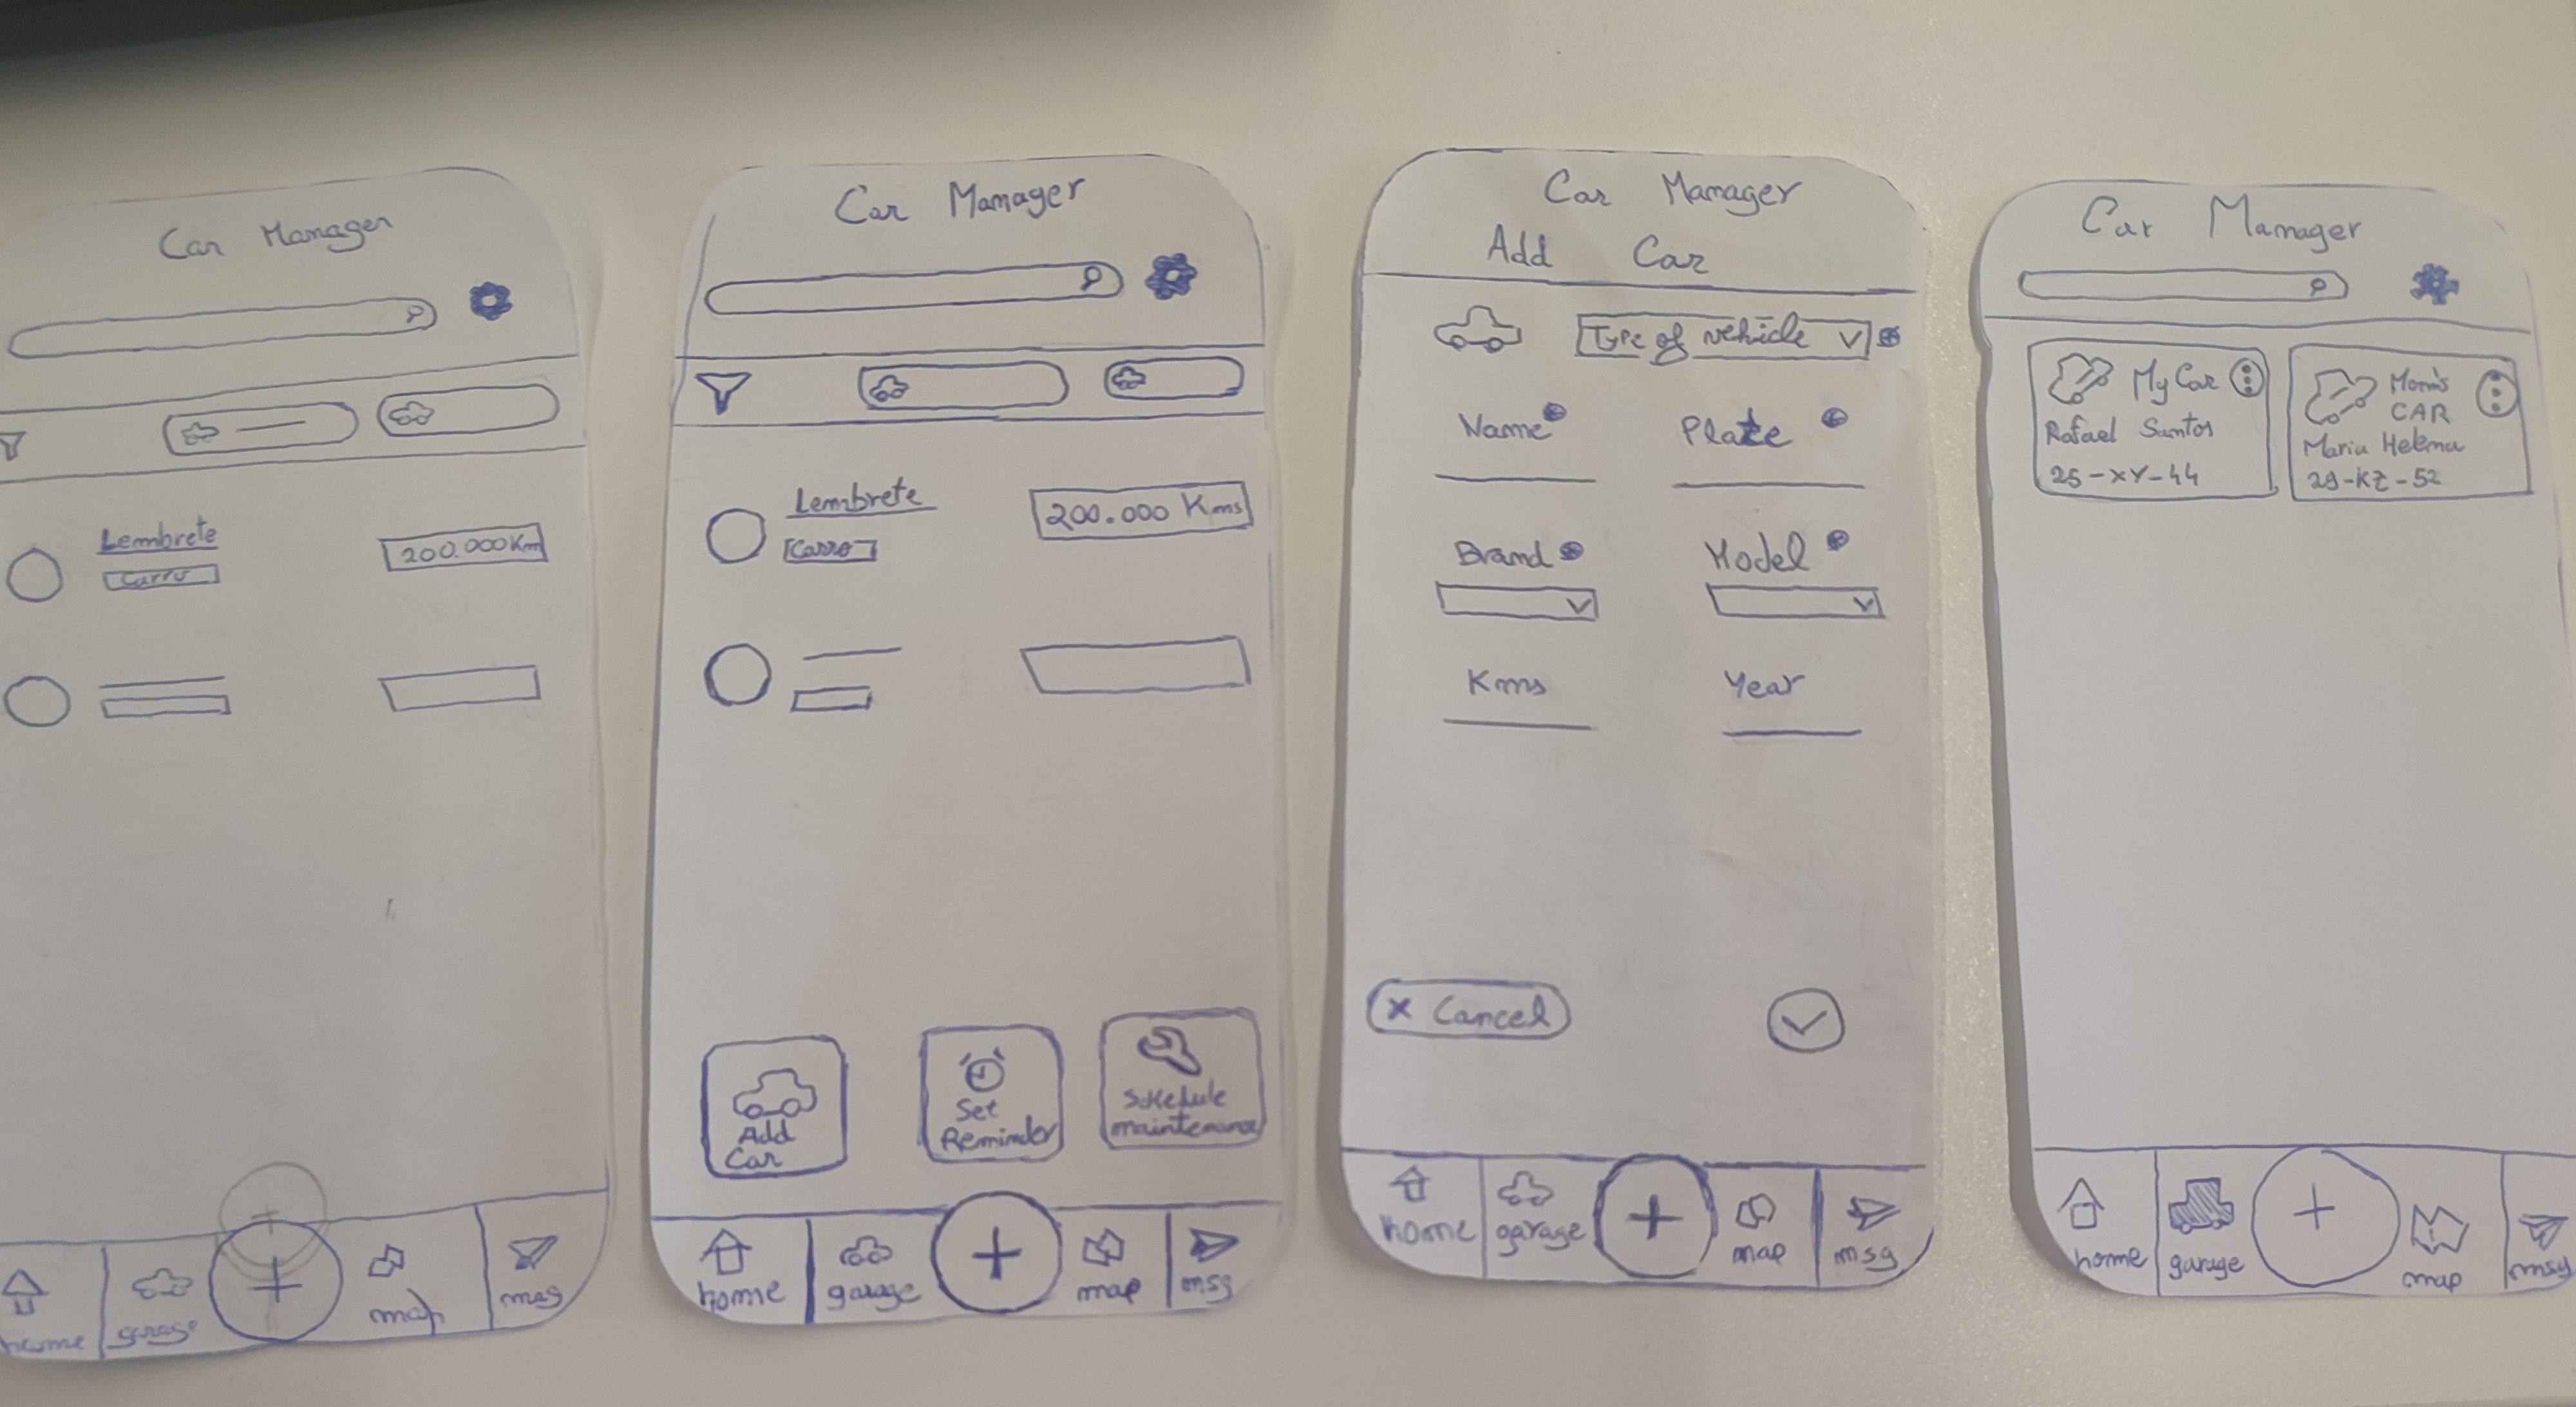 Car Manager
Lembrete
Carro
200.000 Km
home
garage
+
map
msg
Car Manager
Lembrete
Carro
200.000 Kms
Add
Car
Set
Reminder
Schedule
maintenance
home
garage
+
map
msg
Car Manager
Add Car
Type of vehicle
Name
Plate
Brand
Model
Kms
Year
x Cancel
home
garage
+
map
msg
Car Manager
My Car
Rafael Santos
25-XY-44
Mom's
CAR
Maria Helena
29-KZ-52
home
garage
+
map
msg